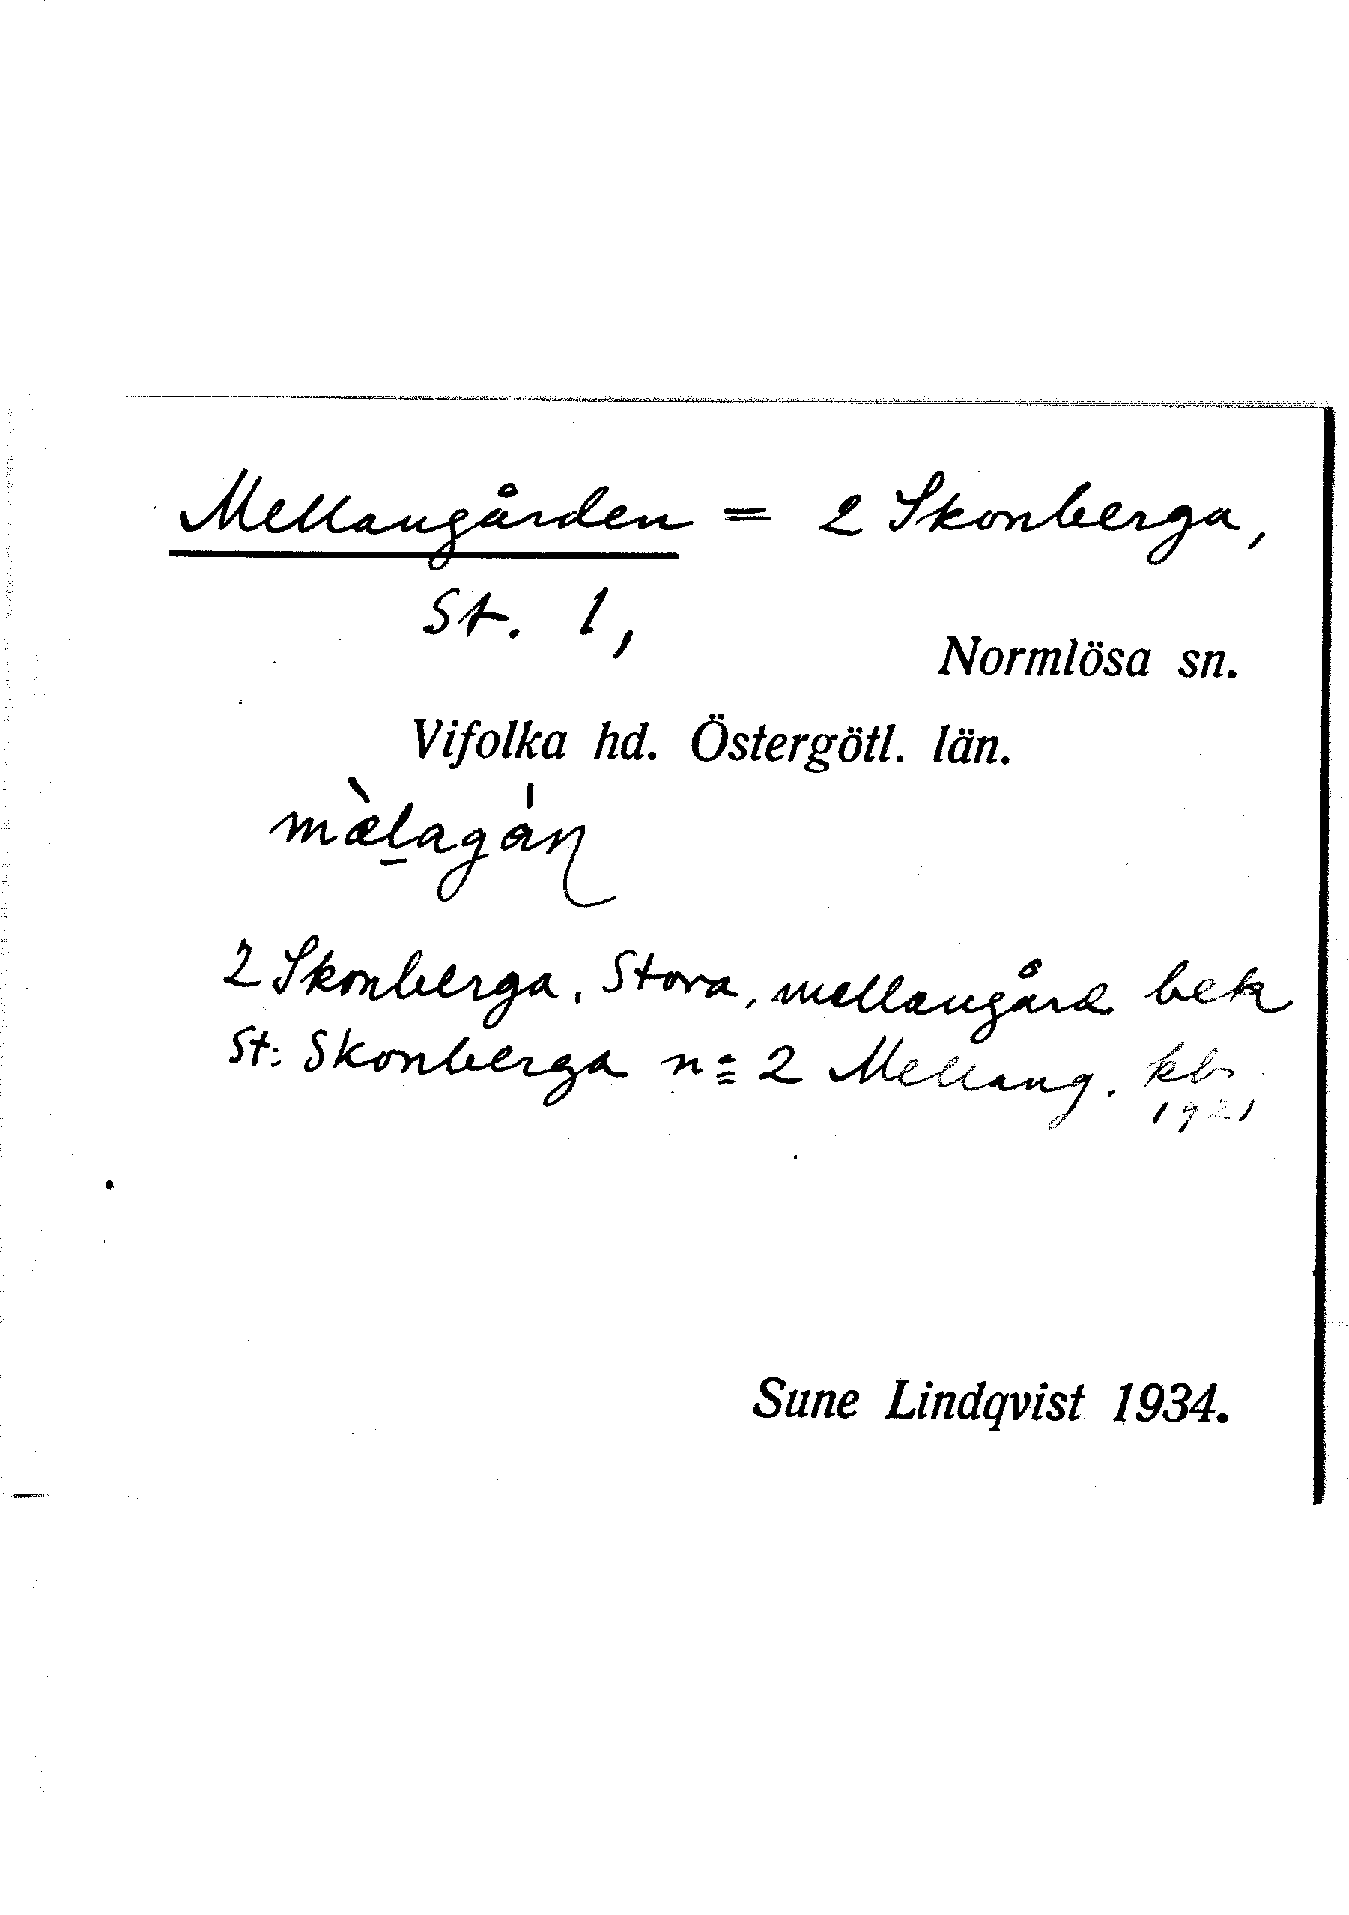 Mellangården = 2 Skonberga,
St. 1,
Normlösa sn.
Vifolka hd. Östergötl. län.
mæ̀lagán
2 Skonberga, Stora, mellangård bek
St: Skonberga no 2 Mellang. kbr
1921
Sune Lindqvist 1934.